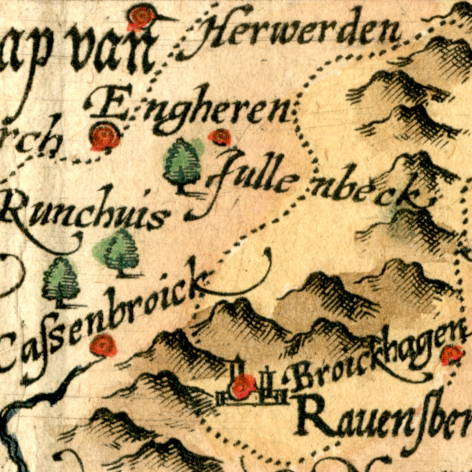 Herwerden
ap van
Engheren
rch
Jullenbeck
Runchuis
Caſſenbroick
Broickhagen
Rauenſber